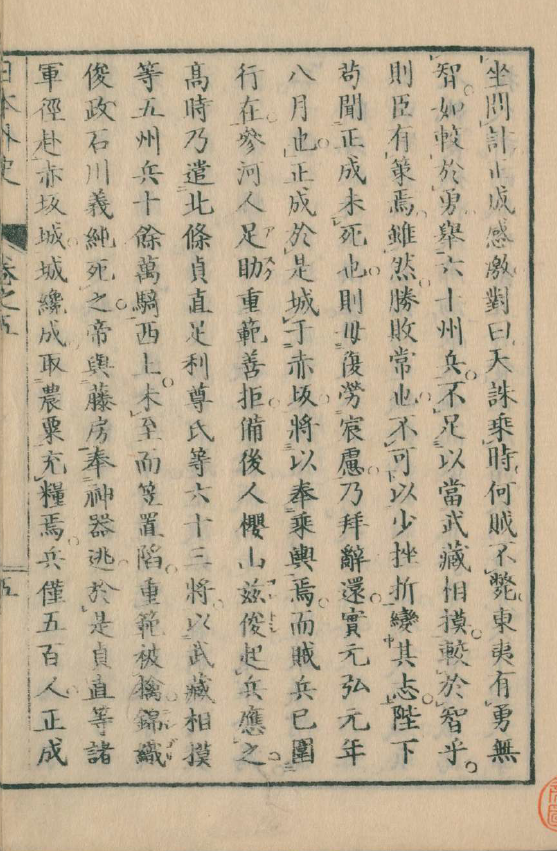 坐問計正成感激對曰天誅乘時何賊不斃東夷有勇無
智如較於勇舉六十州兵不足以當武藏相摸較於智乎
則臣有策焉雖然勝敗常也不可以少挫折變其志陛下
苟聞正成未死也則毋復勞宸慮乃拜辭還實元弘元年
八月也正成於是城于赤坂將以奉乘輿焉而賊兵已圍
行在參河人足助重範善拒備後人櫻山茲俊起兵應之
高時乃遣北條貞直足利尊氏等六十三將以武藏相摸
等五州兵十餘萬騎西上未至而笠置陷重範被擒錦織
俊政石川義純死之帝與藤房奉神器逃於是貞直等諸
軍徑赴赤坂城城纔成取農粟充糧焉兵僅五百人正成
日本外史 卷之五 五